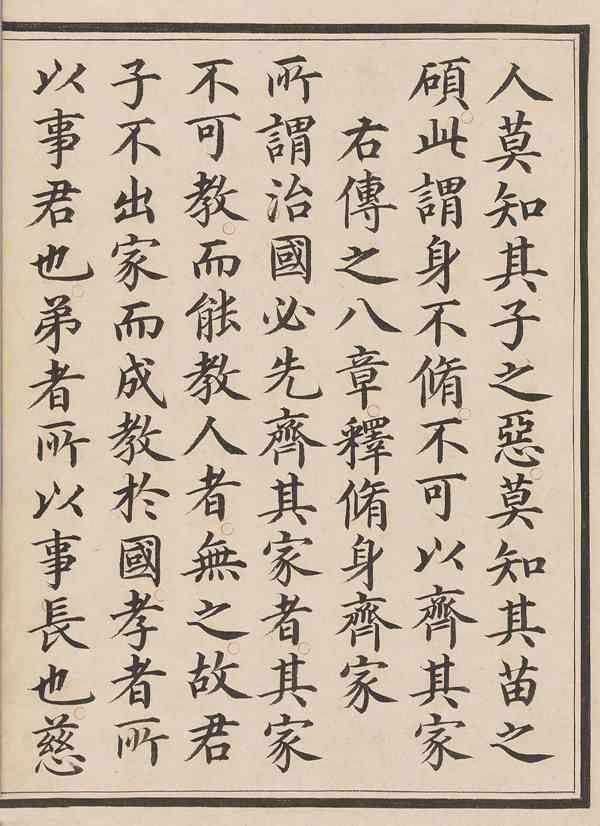 人莫知其子之惡莫知其苗之
碩此謂身不脩不可以齊其家
右傳之八章釋脩身齊家
所謂治國必先齊其家者其家
不可教而能教人者無之故君
子不出家而成教於國孝者所
以事君也弟者所以事長也慈